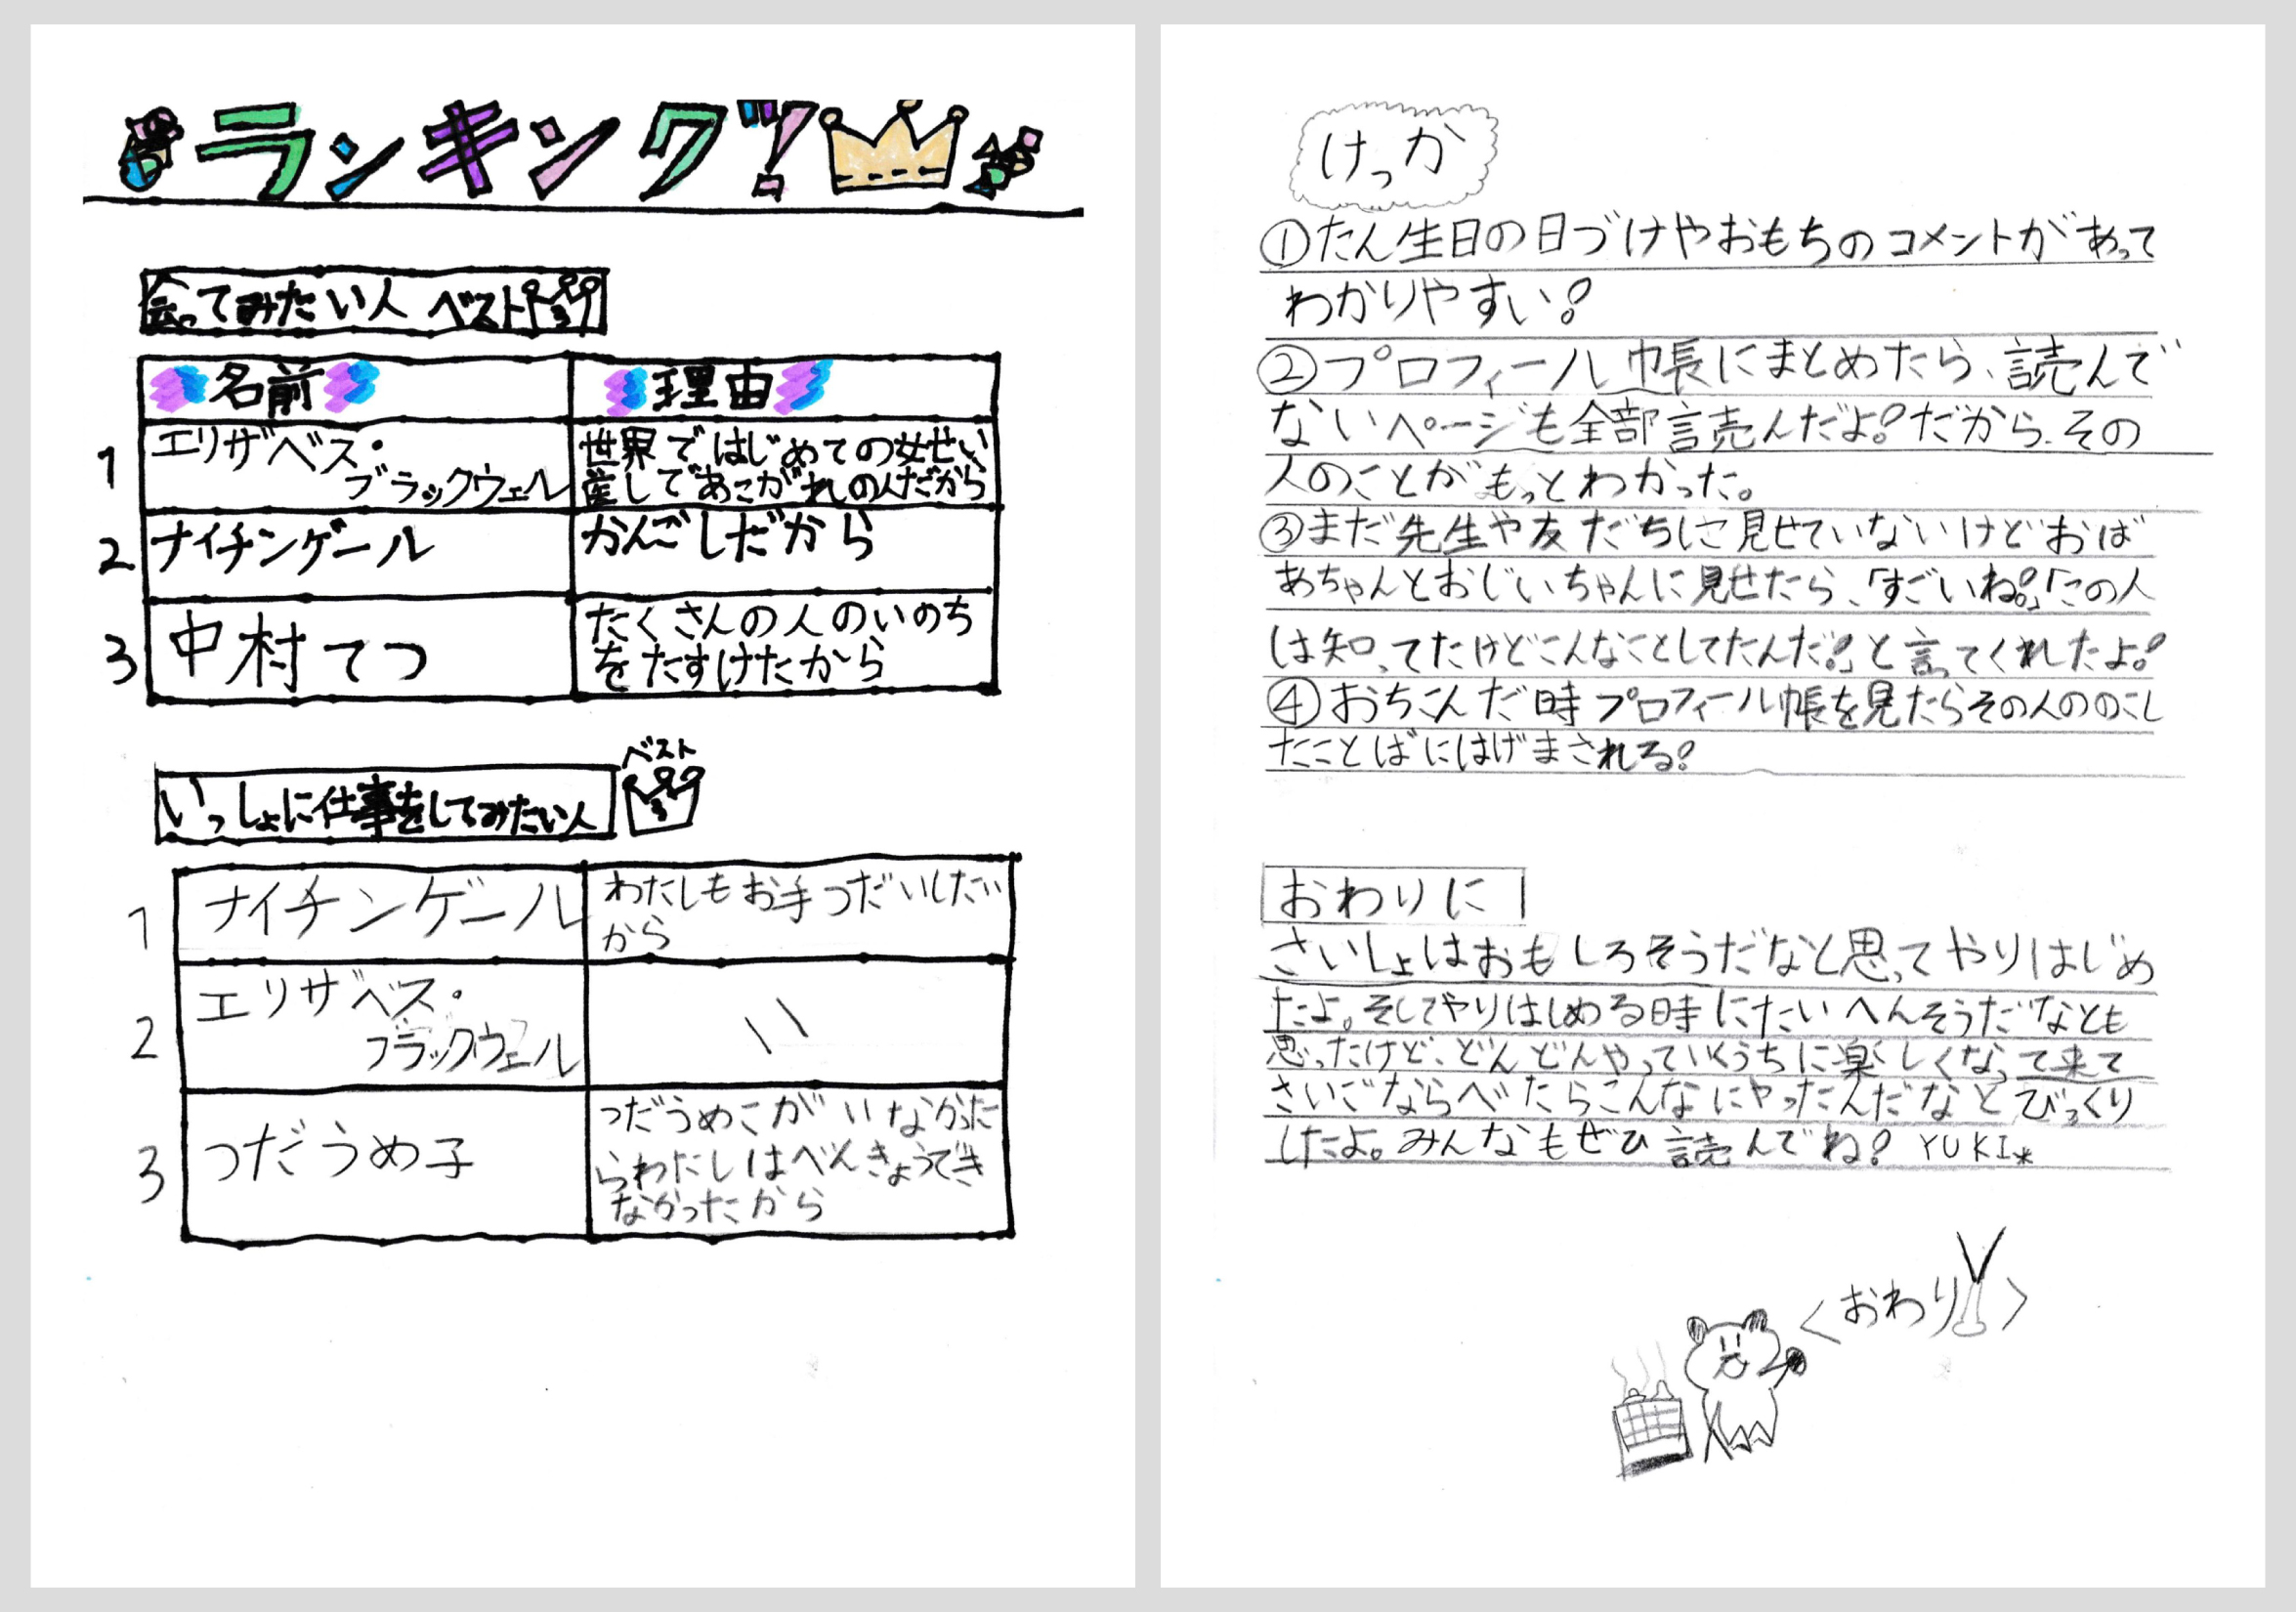 ランキング!
会ってみたい人 ベスト3
名前 理由
1 エリザベス・
ブラックウェル
世界ではじめての女せい
医しであこがれの人だから
2 ナイチンゲール
かんごしだから
3 中村てつ
たくさんの人のいのち
をたすけたから
いっしょに仕事をしてみたい人
ベスト
3
1 ナイチンゲール
わたしもお手つだいしたい
から
2 エリザベス・
ブラックウェル
〃
3 つだうめ子
つだうめこがいなかった
らわたしはべんきょうでき
なかったから
けっか
①たん生日の日づけやおもちのコメントがあって
わかりやすい!
②プロフィール帳にまとめたら、読んで
ないページも全部読んだよ!だから、その
人のことがもっとわかった。
③まだ先生や友だちに見せていないけどおば
あちゃんとおじいちゃんに見せたら、「すごいね!」「この人
は知ってたけどこんなことしてたんだ!」と言ってくれたよ!
④おちこんだ時プロフィール帳を見たらその人ののこし
たことばにはげまされる!
おわりに
さいしょはおもしろそうだなと思ってやりはじめ
たよ。そしてやりはじめる時にたいへんそうだなとも
思ったけど、どんどんやっていくうちに楽しくなって来て
さいごならべたらこんなにやったんだなとびっくり
したよ。みんなもぜひ読んでね! YUKI*
<おわり!>